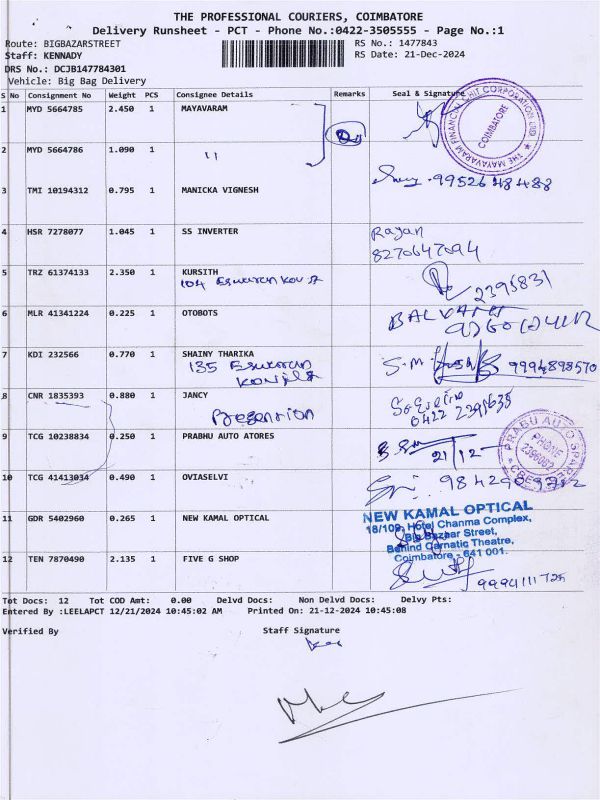 THE PROFESSIONAL COURIERS, COIMBATORE
Delivery Runsheet - PCT - Phone No.:0422-3505555 - Page No.:1
Route: BIGBAZARSTREET
RS No.: 1477843
Staff: KENNADY
RS Date: 21-Dec-2024
DRS No.: DCJB147784301
Vehicle: Big Bag Delivery
S No Consignment No Weight PCS Consignee Details Remarks Seal & Signature
1 MYD 5664785 2.450 1 MAYAVARAM
THE MAYAVARAM FINANCIAL CHIT CORPORATION LTD.
COIMBATORE
2 MYD 5664786 1.090 1 "
3 TMI 10194312 0.795 1 MANICKA VIGNESH 99526 48488
4 HSR 7278077 1.045 1 SS INVERTER Rajan
8270647094
5 TRZ 61374133 2.350 1 KURSITH
104 2395831
6 MLR 41341224 0.225 1 OTOBOTS
7 KDI 232566 0.770 1 SHAINY THARIKA
135 9994898570
8 CNR 1835393 0.880 1 JANCY
0422 2391635
9 TCG 10238834 0.250 1 PRABHU AUTO ATORES 21/12
PRABU AUTO SPARES
PHONE
10 TCG 41413034 0.490 1 OVIASELVI
11 GDR 5402960 0.265 1 NEW KAMAL OPTICAL NEW KAMAL OPTICAL
18/109, Hotel Channa Complex,
Big Bazaar Street,
Behind Carnatic Theatre,
Coimbatore - 641 001.
12 TEN 7870490 2.135 1 FIVE G SHOP 9994111725
Tot Docs: 12 Tot COD Amt: 0.00 Delvd Docs: Non Delvd Docs: Delvy Pts:
Entered By :LEELAPCT 12/21/2024 10:45:02 AM Printed On: 21-12-2024 10:45:08
Verified By Staff Signature